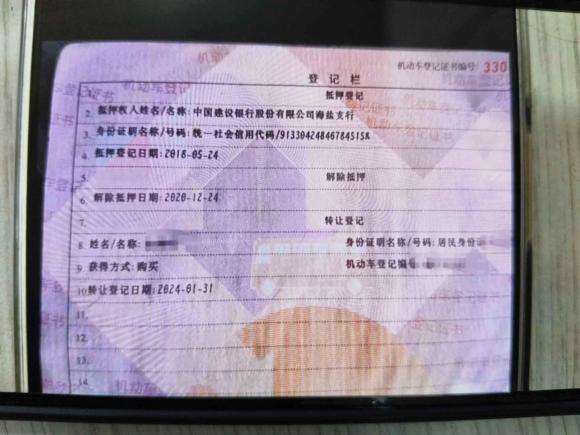 机动车登记证书编号: 330
登记栏
1. 抵押登记
2. 抵押权人姓名/名称: 中国建设银行股份有限公司海盐支行
3. 身份证明名称/号码: 统一社会信用代码/91330424846784515K
4. 抵押登记日期: 2018-05-24
5. 解除抵押
6. 解除抵押日期: 2020-12-24
7. 转让登记
8. 姓名/名称: 身份证明名称/号码: 居民身份
9. 获得方式: 购买 机动车登记编号
10. 转让登记日期: 2024-01-31
11.
12.
13.
14